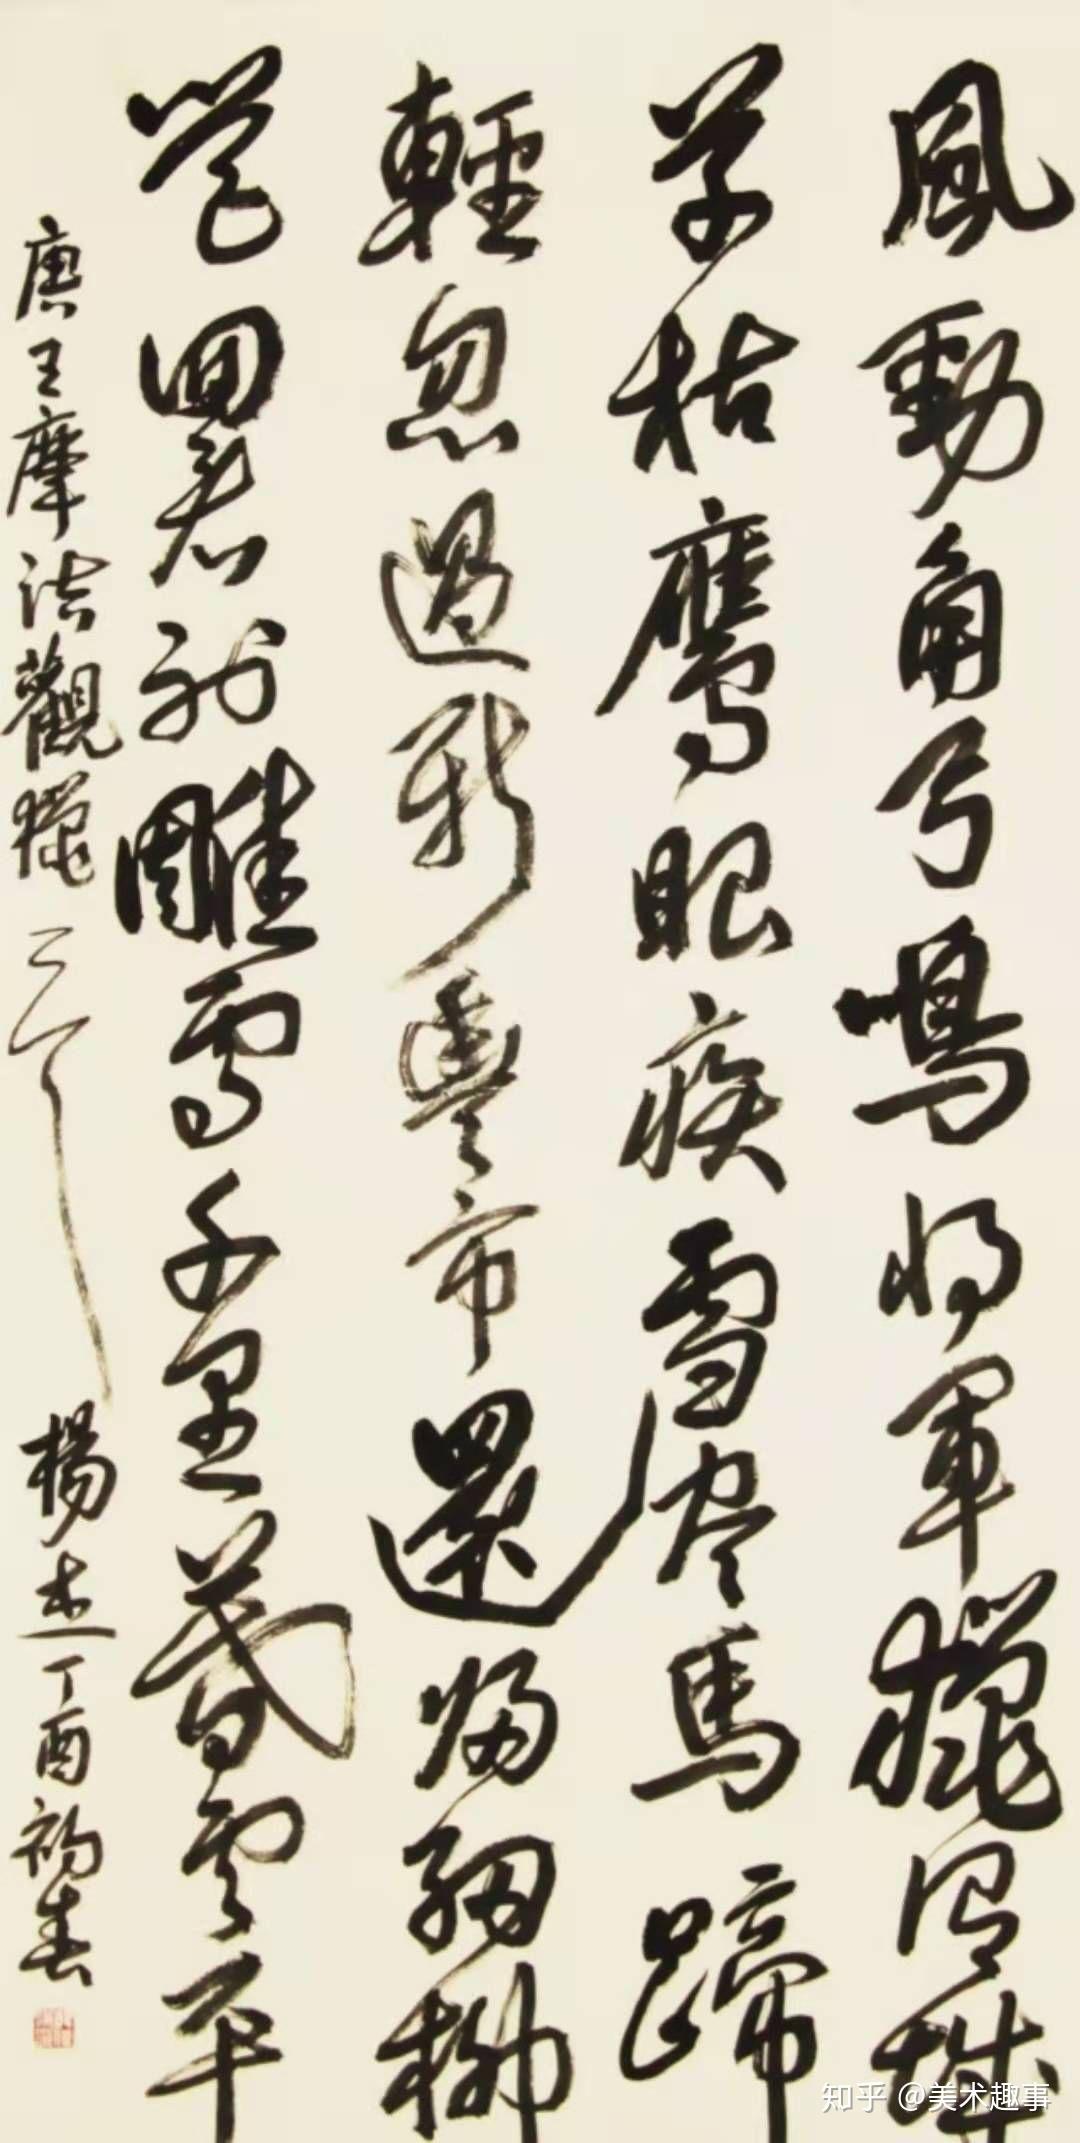 風勁角弓鳴将軍獵渭城
草枯鷹眼疾雪尽馬蹄
輕忽過新豐市還歸細柳
營回看射雕處千里暮雲平
唐王摩詰觀獵 楊杰丁酉初春
知乎 @美术趣事